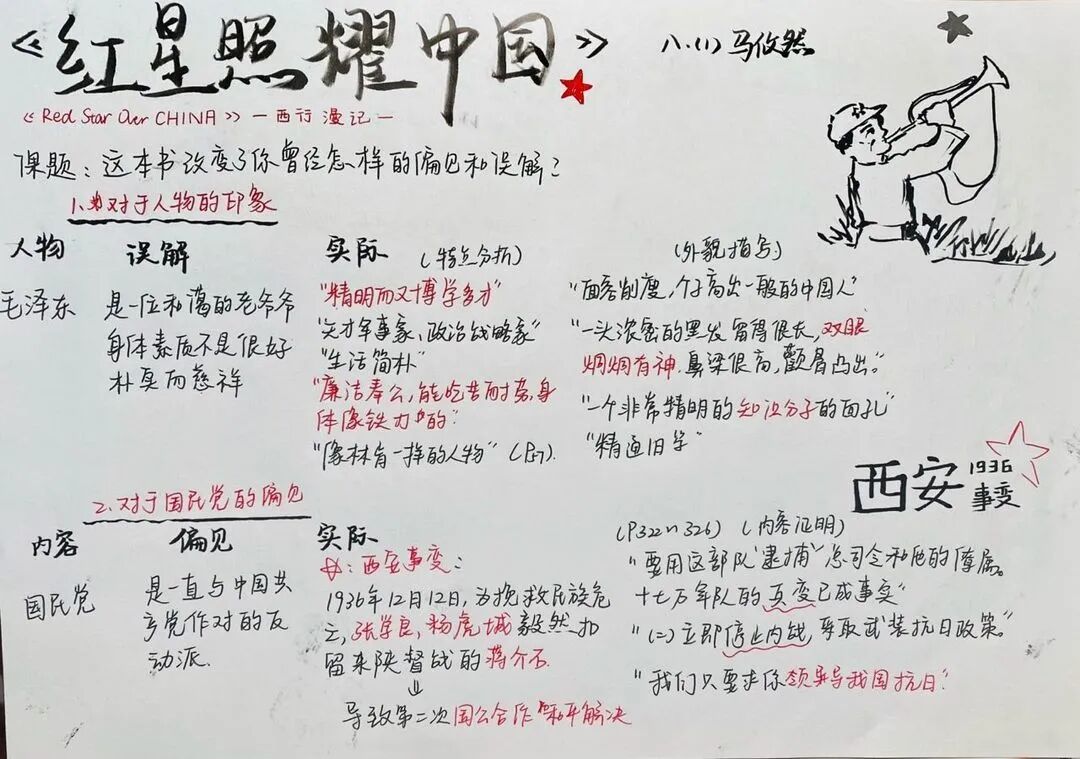 《红星照耀中国》
八.(1)马攸然
《Red Star Over CHINA》—西行漫记—
课题：这本书改变了你曾经怎样的偏见和误解？
1.对于人物的印象
人物 误解 实际 (特点分析) (外貌描写)
毛泽东
是一位和蔼的老爷爷
身体素质不是很好
朴真而慈祥
"精明而又博学多才"
"天才军事家、政治战略家"
"生活简朴"
"廉洁奉公，能吃苦而耐劳，身
体像铁打的"
"像林肯一样的人物"
"面容削廋，个子高出一般的中国人"
"一头浓密的黑发留得很长，双眼
炯炯有神.鼻梁很高，颧骨凸出。"
"一个非常精明的知识分子的面孔"
"精通旧学"
西安 1936 事变
2.对于国民党的偏见
内容 偏见 实际 (P322~326) (内容证明)
国民党
是一直与中国共
产党作对的反
动派.
：西安事变：
1936年12月12日，为挽救民族危
亡，张学良，杨虎城毅然扣
留来陕督战的蒋介石.
↓
导致第二次国公合作和平解决
"要用这部队"逮捕"总司令和他的僚属。
十七万军队的兵变已成事实"
"(二)立即停止内战，采取武装抗日政策。"
"我们只要求你领导我国抗日"